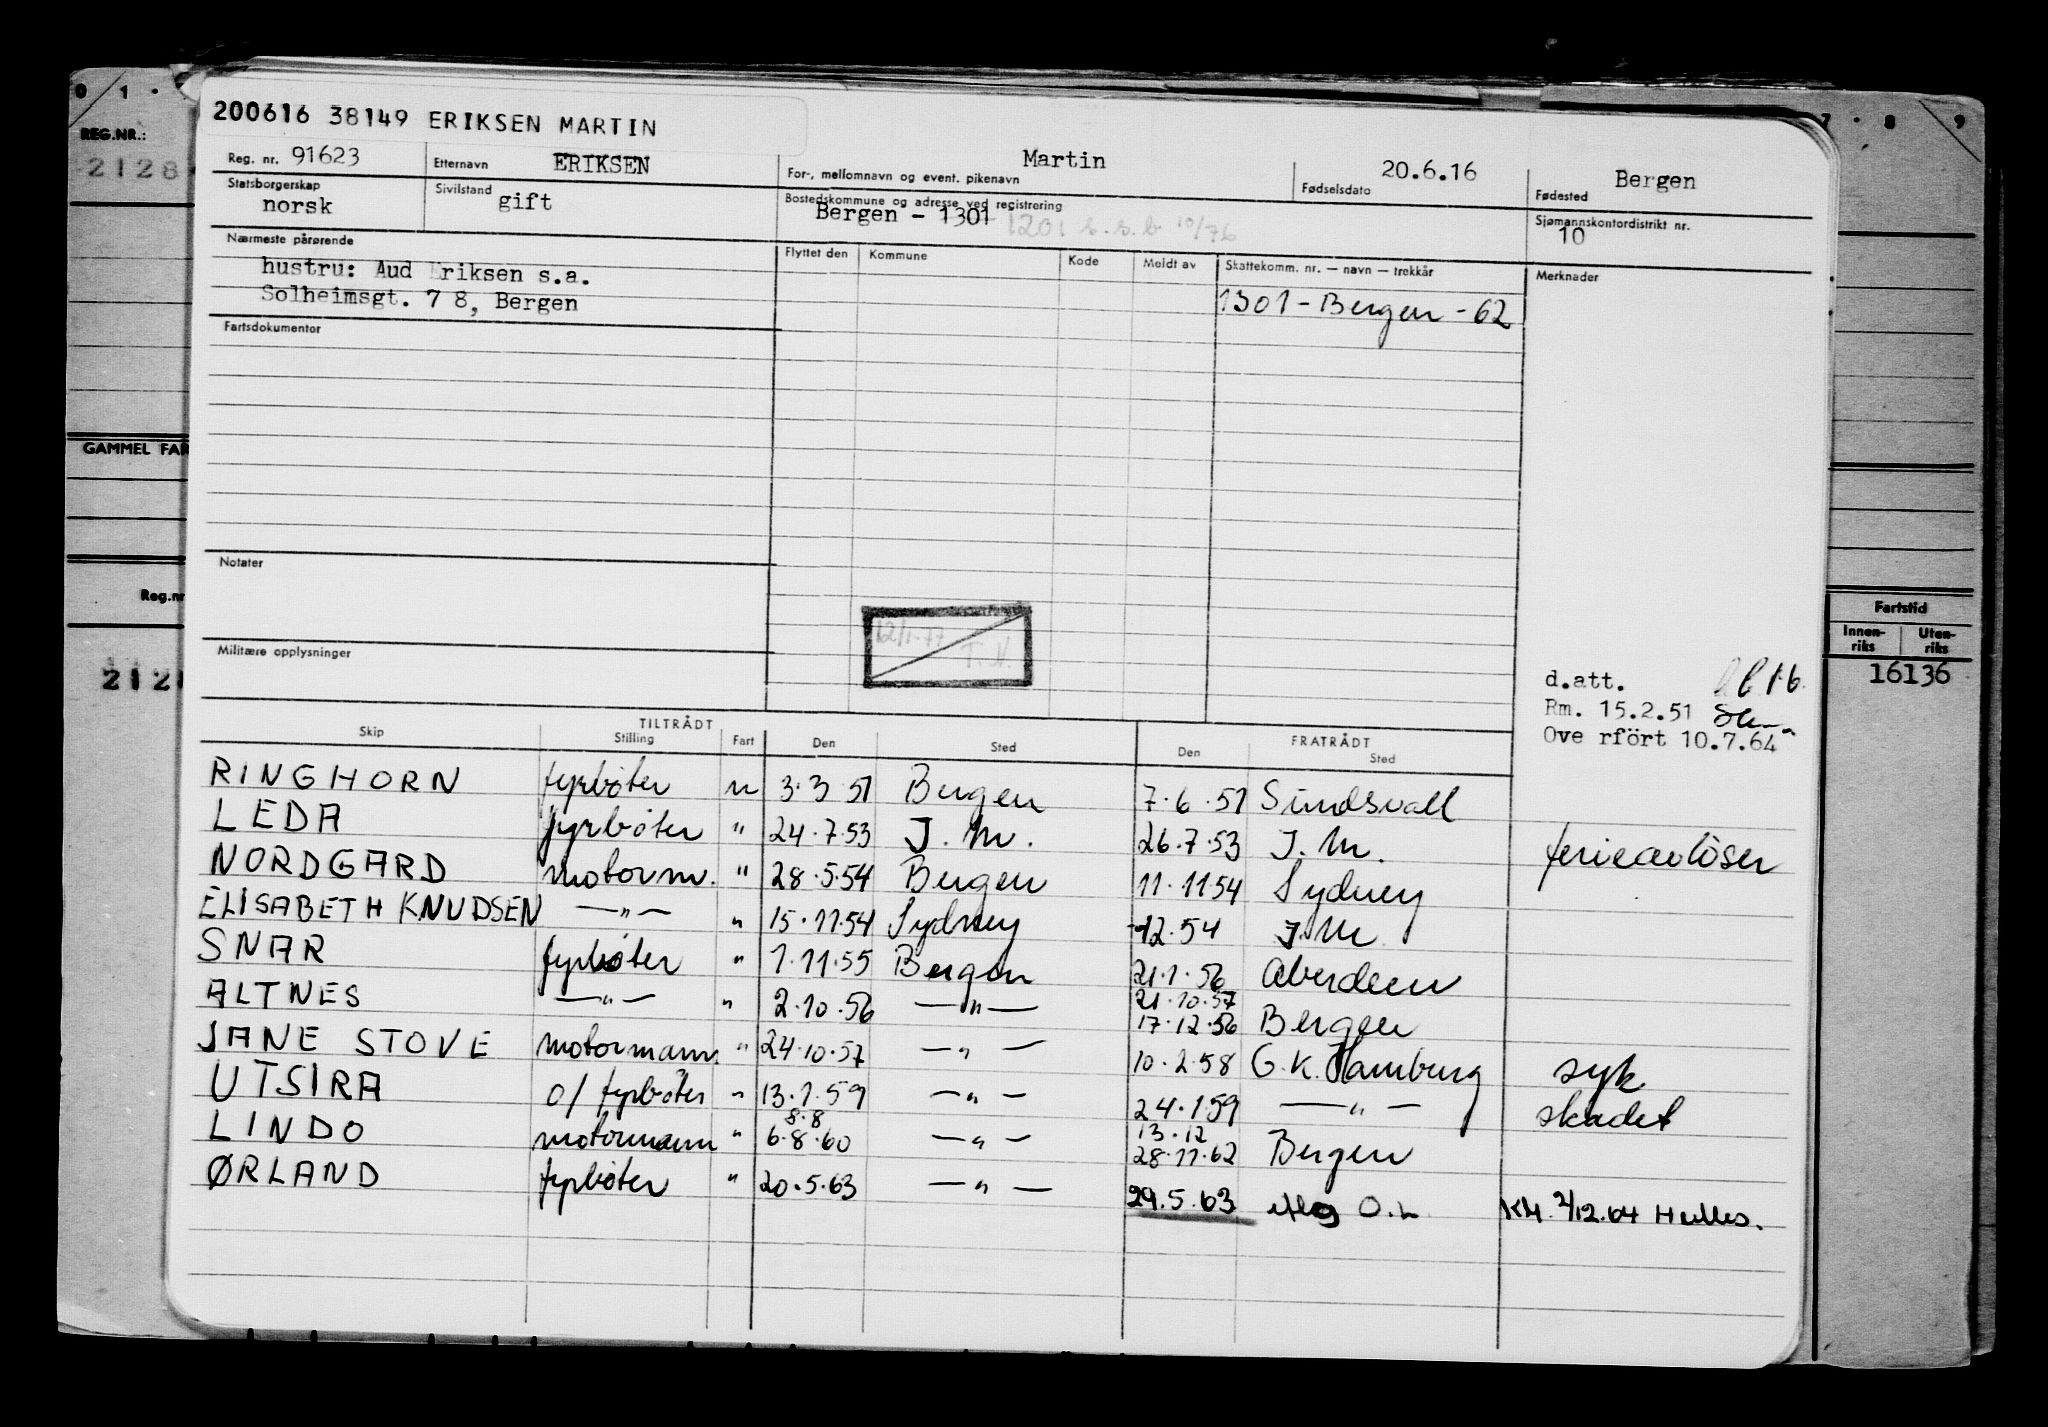 0 1 · 7 · 8 9
REG.NR.:
2128
GAMMEL FAR
Reg.nr
212
Fartstid
Innen-riks Uten-riks
16136
200616 38149 ERIKSEN MARTIN
Reg. nr. 91623 Etternavn ERIKSEN For-, mellomnavn og event. pikenavn Martin Fødselsdato 20.6.16 Fødested Bergen
Statsborgerskap norsk Sivilstand gift Bostedskommune og adresse ved registrering Bergen - 1301 1201 s.s.b 10/76 Sjømannskontordistrikt nr. 10
Nærmeste pårørende Flyttet den Kommune Kode Meldt av Skattekomm. nr. — navn — trekkår Merknader
hustru: Aud Eriksen s.a.
Solheimsgt. 7 8, Bergen
1301 - Bergen - 62
Fartsdokumentor
Notater
12/1-77 T.N.
Militære opplysninger
d.att.
Rm. 15.2.51
Ove rfört 10.7.64
TILTRÅDT FRATRÅDT
Skip Stilling Fart Den Sted Den Sted
RINGHORN fyrbøter u 3.3 51 Bergen 7.6.51 Sundsvall
LEDA fyrbøter " 24.7.53 J.M. 26.7.53 J.M. ferieavlöser
NORDGARD motorm. " 28.5.54 Bergen 11.11 54 Sydney
ELISABETH KNUDSEN —"— " 15.11.54 Sydney -12.54 J.M
SNAR fyrbøter " 1.11.55 Bergen 21.1.56 Aberdeen
ALTNES —"— " 2.10.56 —"— 21.10.57 17.12.56 Bergen
JANE STOVE motormann " 24.10.57 —"— 10.2.58 G.K. Hamburg syk
UTSIRA o/ fyrbøter " 13.1.59 —"— 24.1.59 —"— skadet
LINDO motormann " 8.8 6.8.60 —"— 13.12 28.11.62 Bergen
ØRLAND fyrbøter " 20.5.63 —"— 29.5.63 O.L 2/12.64